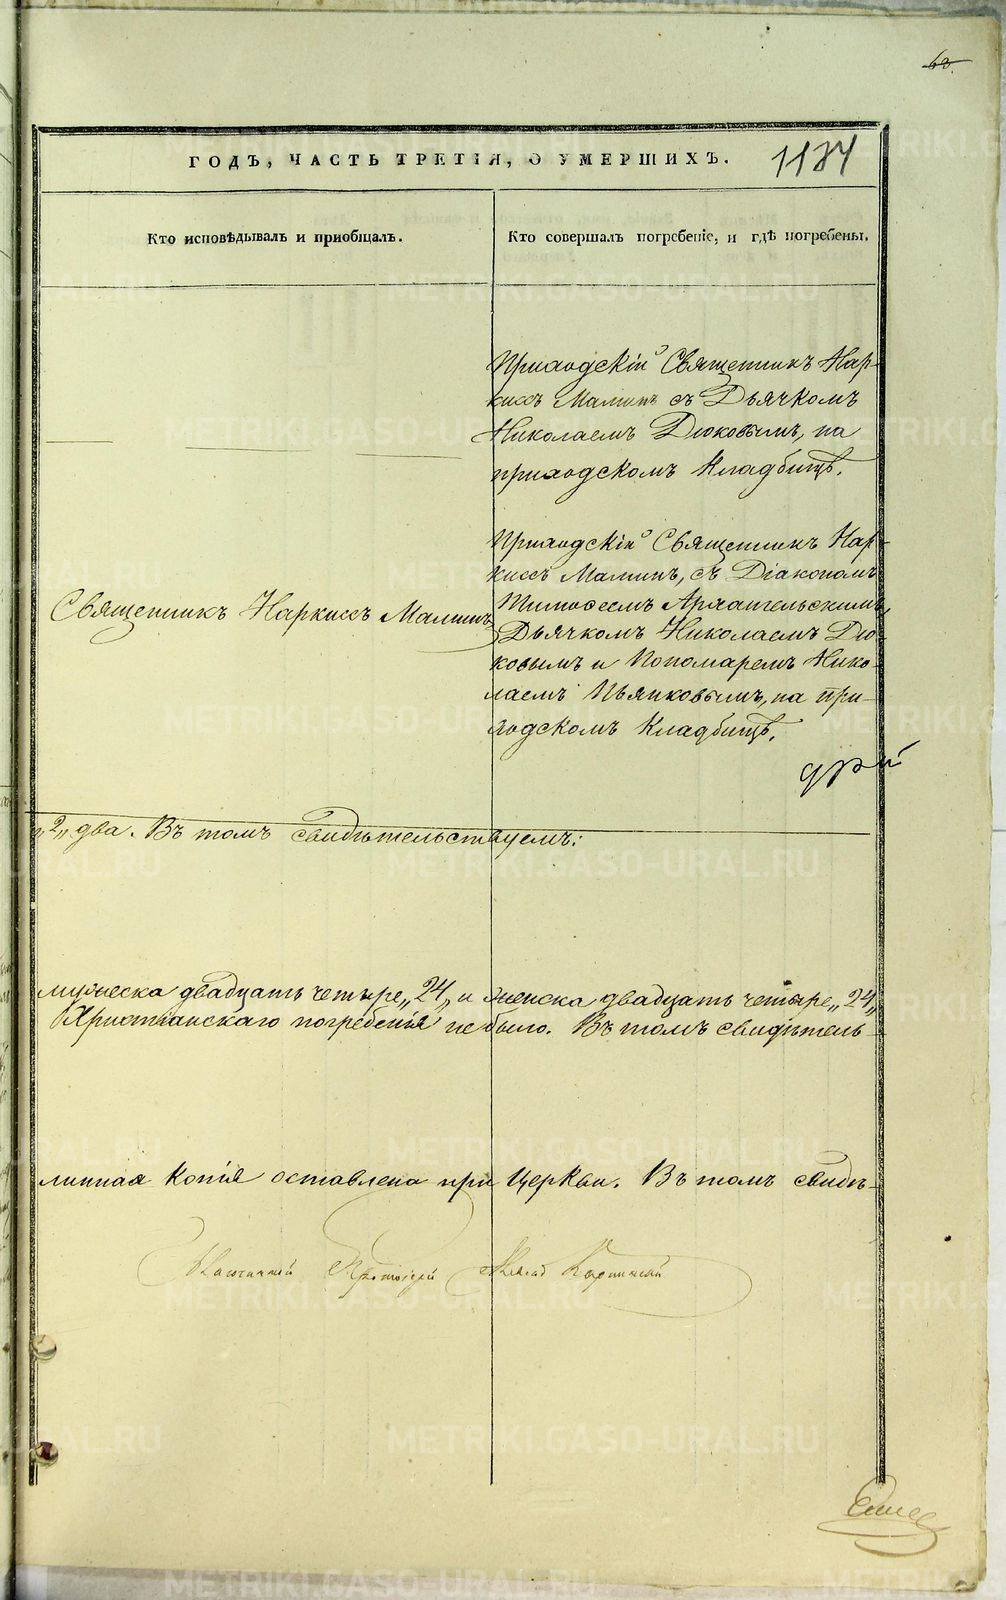 60.
ГОДЪ, ЧАСТЬ ТРЕТІЯ, О УМЕРШИХЪ. 1134
Кто исповѣдывалъ и приобщалъ.
Кто совершалъ погребеніе, и гдѣ погребены.
Приходскій Священникъ Нар-
киссъ Маминъ съ Дьячкомъ
Николаемъ Дюковымъ, на
приходскомъ Кладбищѣ.
Священникъ Наркиссъ Маминъ
Приходскій Священникъ Нар-
киссъ Маминъ, съ Діакономъ
Тимофеемъ Архангельскимъ,
Дьячкомъ Николаемъ Дю-
ковымъ и Пономаремъ Нико-
лаемъ Пьянковымъ, на при-
ходскомъ Кладбищѣ.
„2„ два. Въ томъ свидѣтельствуемъ:
мужеска двадцать четыре „24„ и женска двадцать четыре „24„
Христіанскаго погребенія не было. Въ томъ свидѣтель-
линная копія оставлена при Церкви. Въ томъ свидѣ-
Протоіерей
METRIKI.GASO-URAL.RU